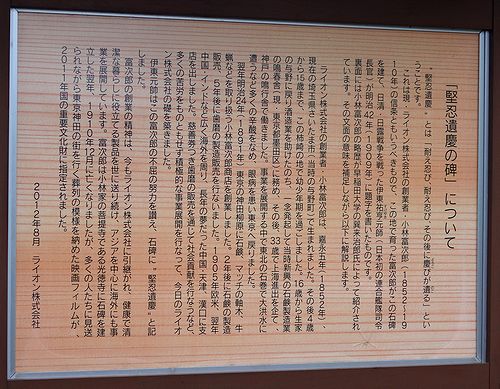 「堅忍遺慶の碑」について
"堅忍遺慶"とは「耐え忍び、耐え忍び、その後に慶びが遺る」とい
うことです。
これは現ライオン株式会社の創業者、小林富次郎(1852~19
10年)の信条ともいうべきもので、この地で育った富次郎が"この石碑
を建て、日清・日露戦争を戦った伊東祐亨元帥(日本初の連合艦隊司令
長官)が明治42年(1909年)に題字を書いたものです。
裏面には小林富次郎の略歴が早稲田大学の巽来治郎氏によって紹介され
ています。その文面の意味を補足しながら以下に解説します。
ライオン株式会社の創業者・小林富次郎は、嘉永五年(1852年)、
現在の埼玉県さいたま市(当時の与野町)で生まれました。その後4歳
から15歳まで、この柿崎の地で幼少年期を過ごしました。16歳から生家
の与野に戻り酒造業を助けたのち、一念発起して当時新興の石鹸製造業
の鳴春舎(現・東京都墨田区)に務め、その後、33歳で上海進出を企て、
神戸の鳴行舎で働きました。事業を展開する中で東北の石巻で大洪水に
遭うなど多くの辛酸をなめ、眼病を患い東京へ戻りました。
翌年明治24年(1891年)東京の神田柳原に石鹸、マッチの軸木、牛
蝋などを取り扱う小林富次郎商店を創業しました。2年後に石鹸の製造
販売、5年後に歯磨の製造販売を行ないました。1905年欧米、翌年
中国・インドなど広く海外を周り、長年の夢だった中国・天津、漢口に支
店を出しました。慈善券つき歯磨の販売を通して社会貢献を行なうなど、
多くの苦労をものともせず積極的な事業展開を行なって、今日のライオ
ン株式会社の礎を築きました。
伊東元帥はこの富次郎の不屈の努力を讃え、石碑に"堅忍遺慶"と記
しました。
富次郎の創業の精神は、今もライオン株式会社に引継がれ、健康で清
潔な暮らしに役立てる製品を世に送り続け、アジアを中心に海外にも事
業を展開しています。富次郎は小林家の菩提寺である光徳寺に石碑を建
立した翌年、1910年12月に亡くなりましたが、多くの人たちに見送
られながら東京神田の街を行く葬列の模様を納めた映画フィルムが、
2011年国の重要文化財に指定されました。
2012年8月 ライオン株式会社